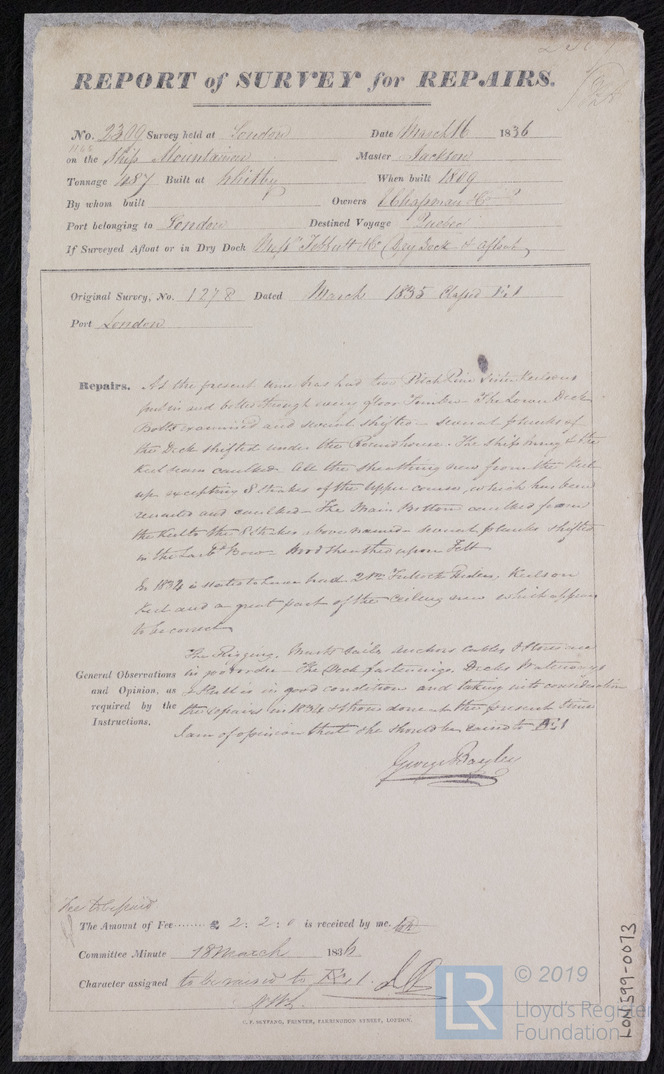 REPORT of SURVEY for REPAIRS.
No. 2309 Survey held at London Date March 16 1836
on the Ship Mountaineer Master Jackson
Tonnage 487 Built at Whitby When built 1809
By whom built Owners Chapman & Co
Port belonging to London Destined Voyage Quebec
If Surveyed Afloat or in Dry Dock Dry Dock & afloat
Original Survey, No. 1278 Dated March 1835 Classed
Port London
Repairs. At the present time has had two Pitch Pine Sister Keelsons
put in and bolted through every floor Timber - The Lower Deck
Bolts examined and several shifted - several planks of
the Deck shifted under the Roundhouse. The ship & the
Keel seam caulked. All the sheathing new from the Keel
up excepting 8 strakes of the upper course, which has been
and caulked - The Main Bottom caulked from
the Keel to the 8 strakes above named - several planks shifted
in the Bow - And sheathed upon Felt
In 1834 is stated to have had 21 Futtock Riders, Keelson
Keel and a great part of the ceiling new which appear
to be correct
General Observations and Opinion, as required by the Instructions.
The Rigging, Masts Sails anchors cables & stores are
in good order - The Deck fastenings, Decks Waterways
& Hull is in good condition and taking into consideration
the repairs in 1834 & those done at the present time
I am of opinion that she should be raised to Æ 1
George Bayley
Fee to be paid
The Amount of Fee ........ £ 2 : 2 : 0 is received by me.
Committee Minute 18 March 1836
Character assigned to be raised to Æ 1.
C. F. SEYFANG, PRINTER, FARRINGDON STREET, LONDON.
LON599-0073
LR
© 2019
Lloyd's Register
Foundation